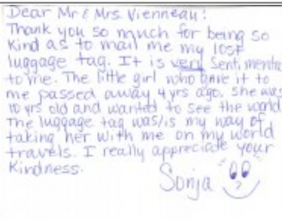 Dear Mr & Mrs. Vienneau:
Thank you so much for being so
kind as to mail me my lost
luggage tag. It is very sentimental
to me. The little girl who gave it to
me passed away 4 yrs ago. She was
10 yrs old and wanted to see the world.
The luggage tag was/is my way of
taking her with me on my world
travels. I really appreciate your
kindness.
Sonja